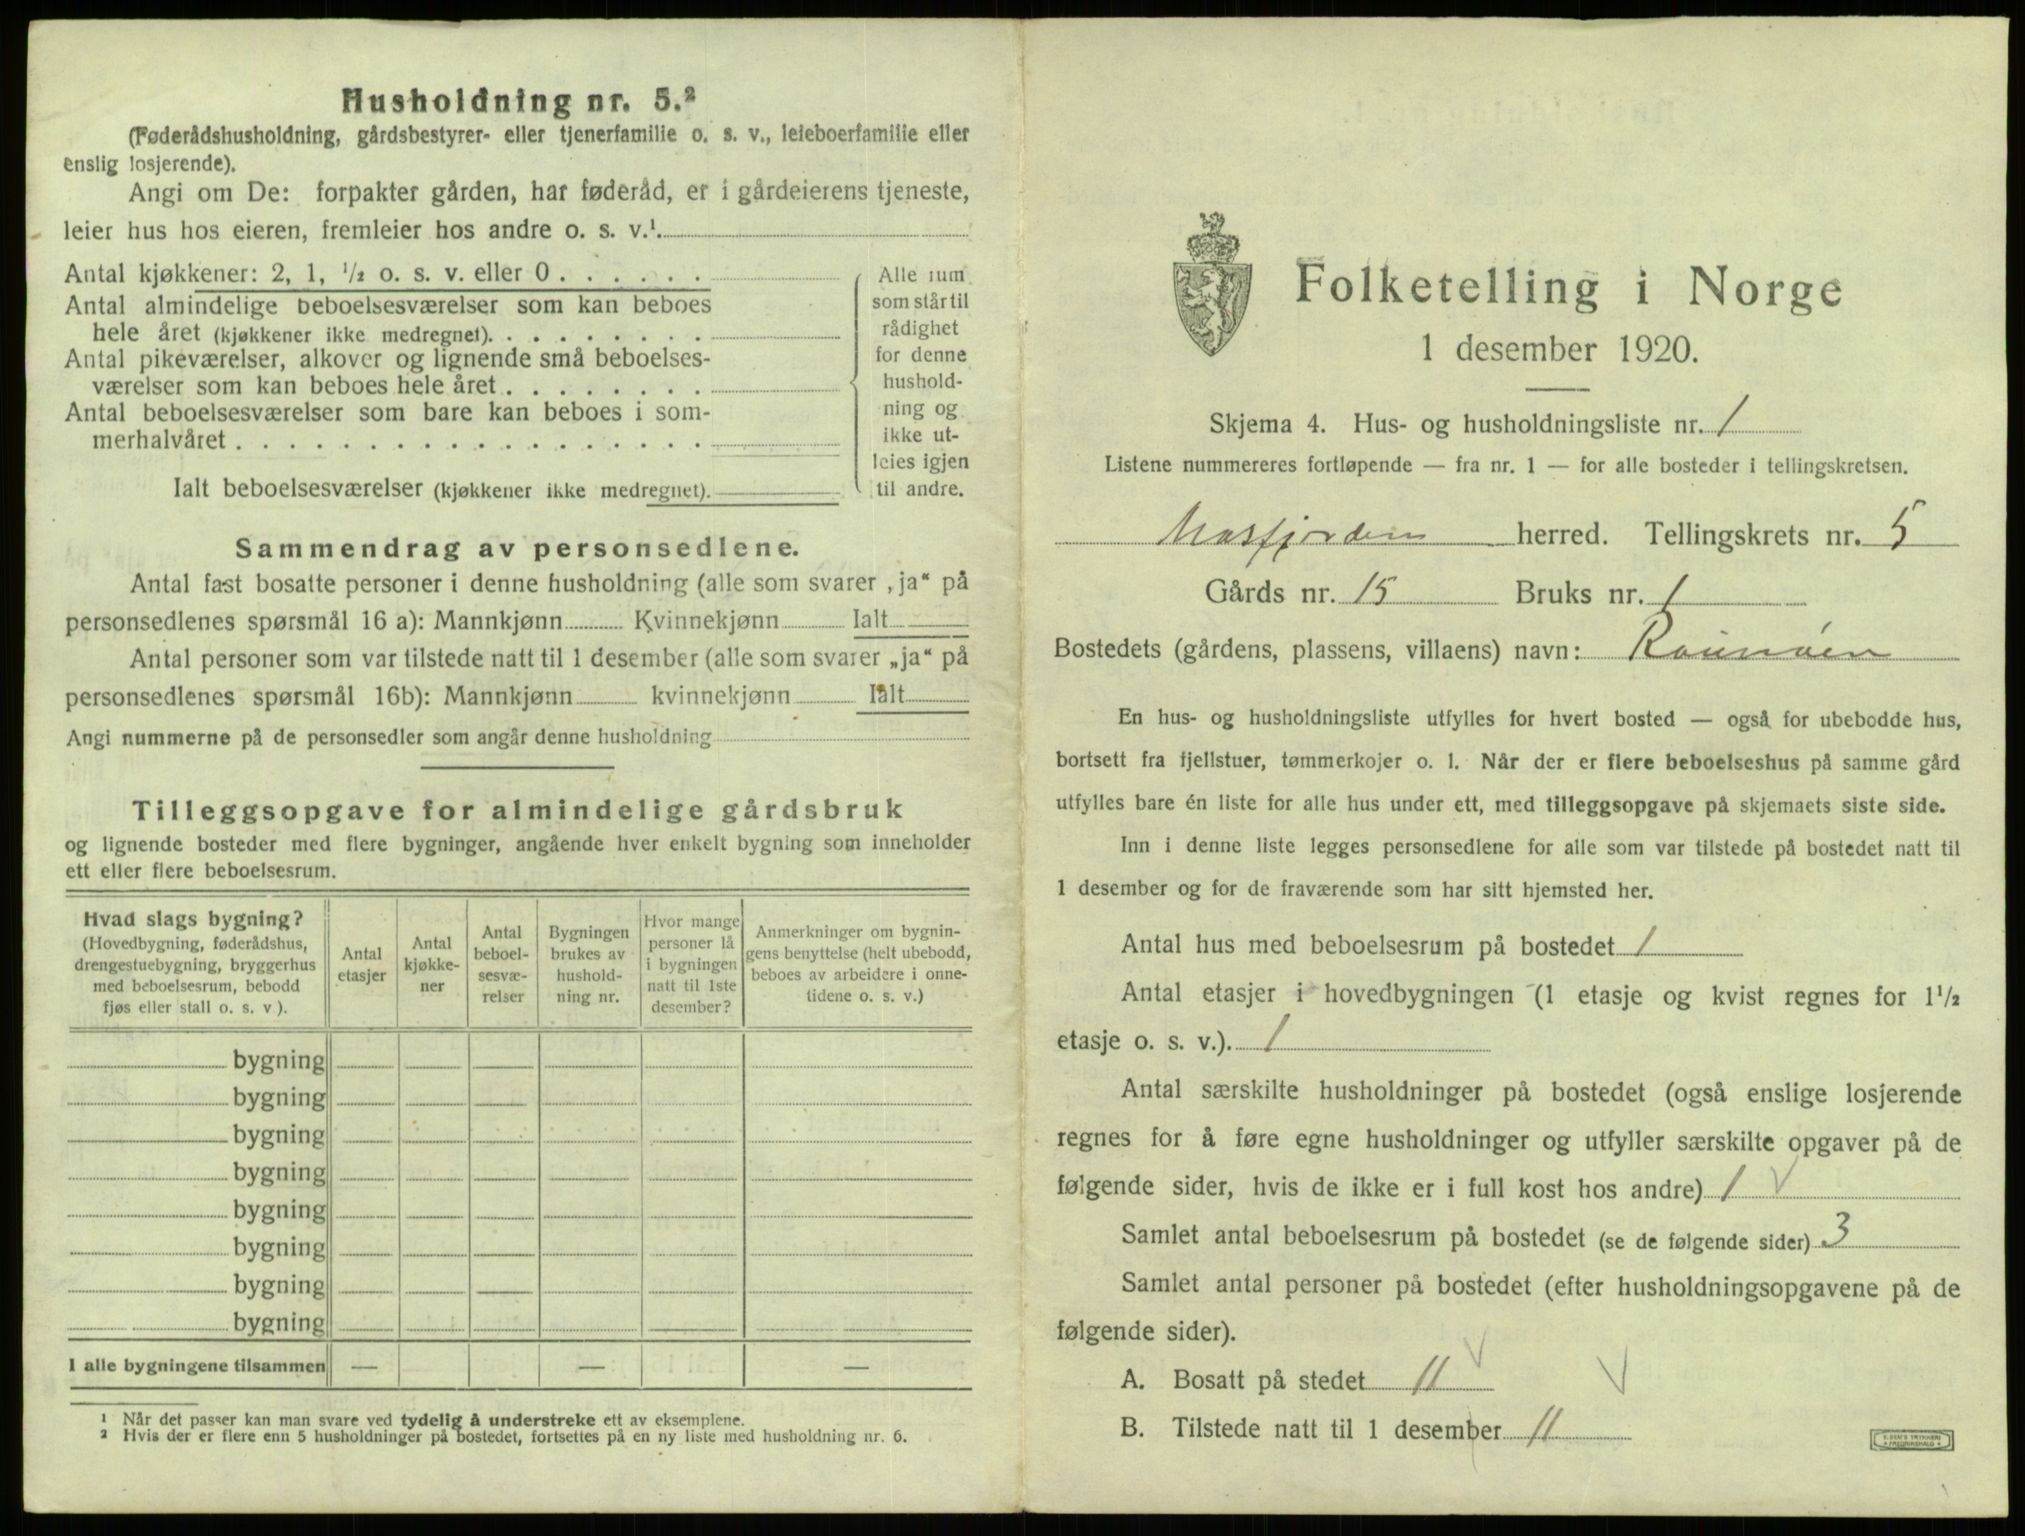 Husholdning nr. 5.²
(Føderådshusholdning, gårdsbestyrer- eller tjenerfamilie o. s. v., leieboerfamilie eller
enslig losjerende).
Angi om De: forpakter gården, har føderåd, er i gårdeierens tjeneste,
leier hus hos eieren, fremleier hos andre o. s. v.¹.
Antal kjøkkener: 2, 1, ½ o. s. v. eller 0 . . . . . .
Antal almindelige beboelsesværelser som kan beboes
hele året (kjøkkener ikke medregnet). . . . . . . . .
Antal pikeværelser, alkover og lignende små beboelses-
værelser som kan beboes hele året . . . . . . . .
Antal beboelsesværelser som bare kan beboes i som-
merhalvåret . . . . . . . . . . . . . . . . . .
Ialt beboelsesværelser (kjøkkener ikke medregnet).
Alle rum
som står til
rådighet
for denne
hushold-
ning og
ikke ut-
leies igjen
til andre.
Sammendrag av personsedlene.
Antal fast bosatte personer i denne husholdning (alle som svarer „ja“ på
personsedlenes spørsmål 16 a): Mannkjønn Kvinnekjønn Ialt
Antal personer som var tilstede natt til 1 desember (alle som svarer „ja“ på
personsedlenes spørsmål 16b): Mannkjønn kvinnekjønn Ialt
Angi nummerne på de personsedler som angår denne husholdning
Tilleggsopgave for almindelige gårdsbruk
og lignende bosteder med flere bygninger, angående hver enkelt bygning som inneholder
ett eller flere beboelsesrum.
Hvad slags bygning?
(Hovedbygning, føderådshus,
drengestuebygning, bryggerhus
med beboelsesrum, bebodd
fjøs eller stall o. s. v ).
Antal
etasjer
Antal
kjøkke-
ner
Antal
beboel-
sesvæ-
relser
Bygningen
brukes av
hushold-
ning nr.
Hvor mange
personer lå
i bygningen
natt til 1ste
desember?
Anmerkninger om bygnin-
gens benyttelse (helt ubebodd,
beboes av arbeidere i onne-
tidene o. s. v.)
bygning
bygning
bygning
bygning
bygning
bygning
bygning
bygning
I alle bygningene tilsammen — — —
¹ Når det passer kan man svare ved tydelig å understreke ett av eksemplene.
² Hvis der er flere enn 5 husholdninger på bostedet, fortsettes på en ny liste med husholdning nr. 6.
Folketelling i Norge
1 desember 1920.
Skjema 4. Hus- og husholdningsliste nr. 1
Listene nummereres fortløpende — fra nr. 1 — for alle bosteder i tellingskretsen.
Masfjorden herred. Tellingskrets nr. 5
Gårds nr. 15 Bruks nr. 1
Bostedets (gårdens, plassens, villaens) navn:
En hus- og husholdningsliste utfylles for hvert bosted — også for ubebodde hus,
bortsett fra fjellstuer, tømmerkojer o. l. Når der er flere beboelseshus på samme gård
utfylles bare én liste for alle hus under ett, med tilleggsopgave på skjemaets siste side.
Inn i denne liste legges personsedlene for alle som var tilstede på bostedet natt til
1 desember og for de fraværende som har sitt hjemsted her.
Antal hus med beboelsesrum på bostedet 1
Antal etasjer i hovedbygningen (1 etasje og kvist regnes for 1½
etasje o. s. v.). 1
Antal særskilte husholdninger på bostedet (også enslige losjerende
regnes for å føre egne husholdninger og utfyller særskilte opgaver på de
følgende sider, hvis de ikke er i full kost hos andre) 1
Samlet antal beboelsesrum på bostedet (se de følgende sider) 3
Samlet antal personer på bostedet (efter husholdningsopgavene på de
følgende sider).
A. Bosatt på stedet 11
B. Tilstede natt til 1 desember 11